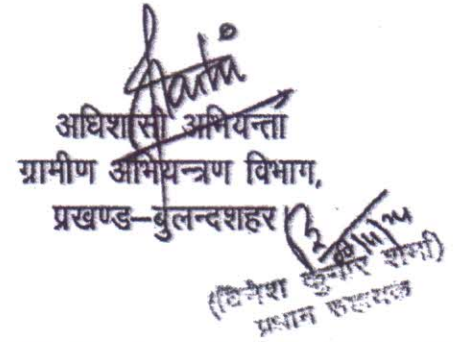 अधिशासी अभियन्ता
ग्रामीण अभियन्त्रण विभाग,
प्रखण्ड–बुलन्दशहर
(दिनेश कुमार शर्मा)
प्रधान सहायक